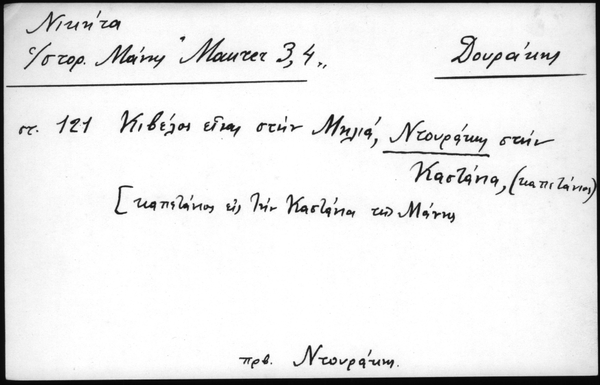 Νικήτα
Ἱστορ. Μάνης "Maurer 3,4„
Δουράκης
στ. 121 Κιβέλος εἶναι στήν Μηλιά, Ντουράκης στήν
Καστάνια, (καπετάνιος)
[καπετάνιος εἰς τήν Καστάνια τῆς Μάνης
πρβ. Ντουράκης.